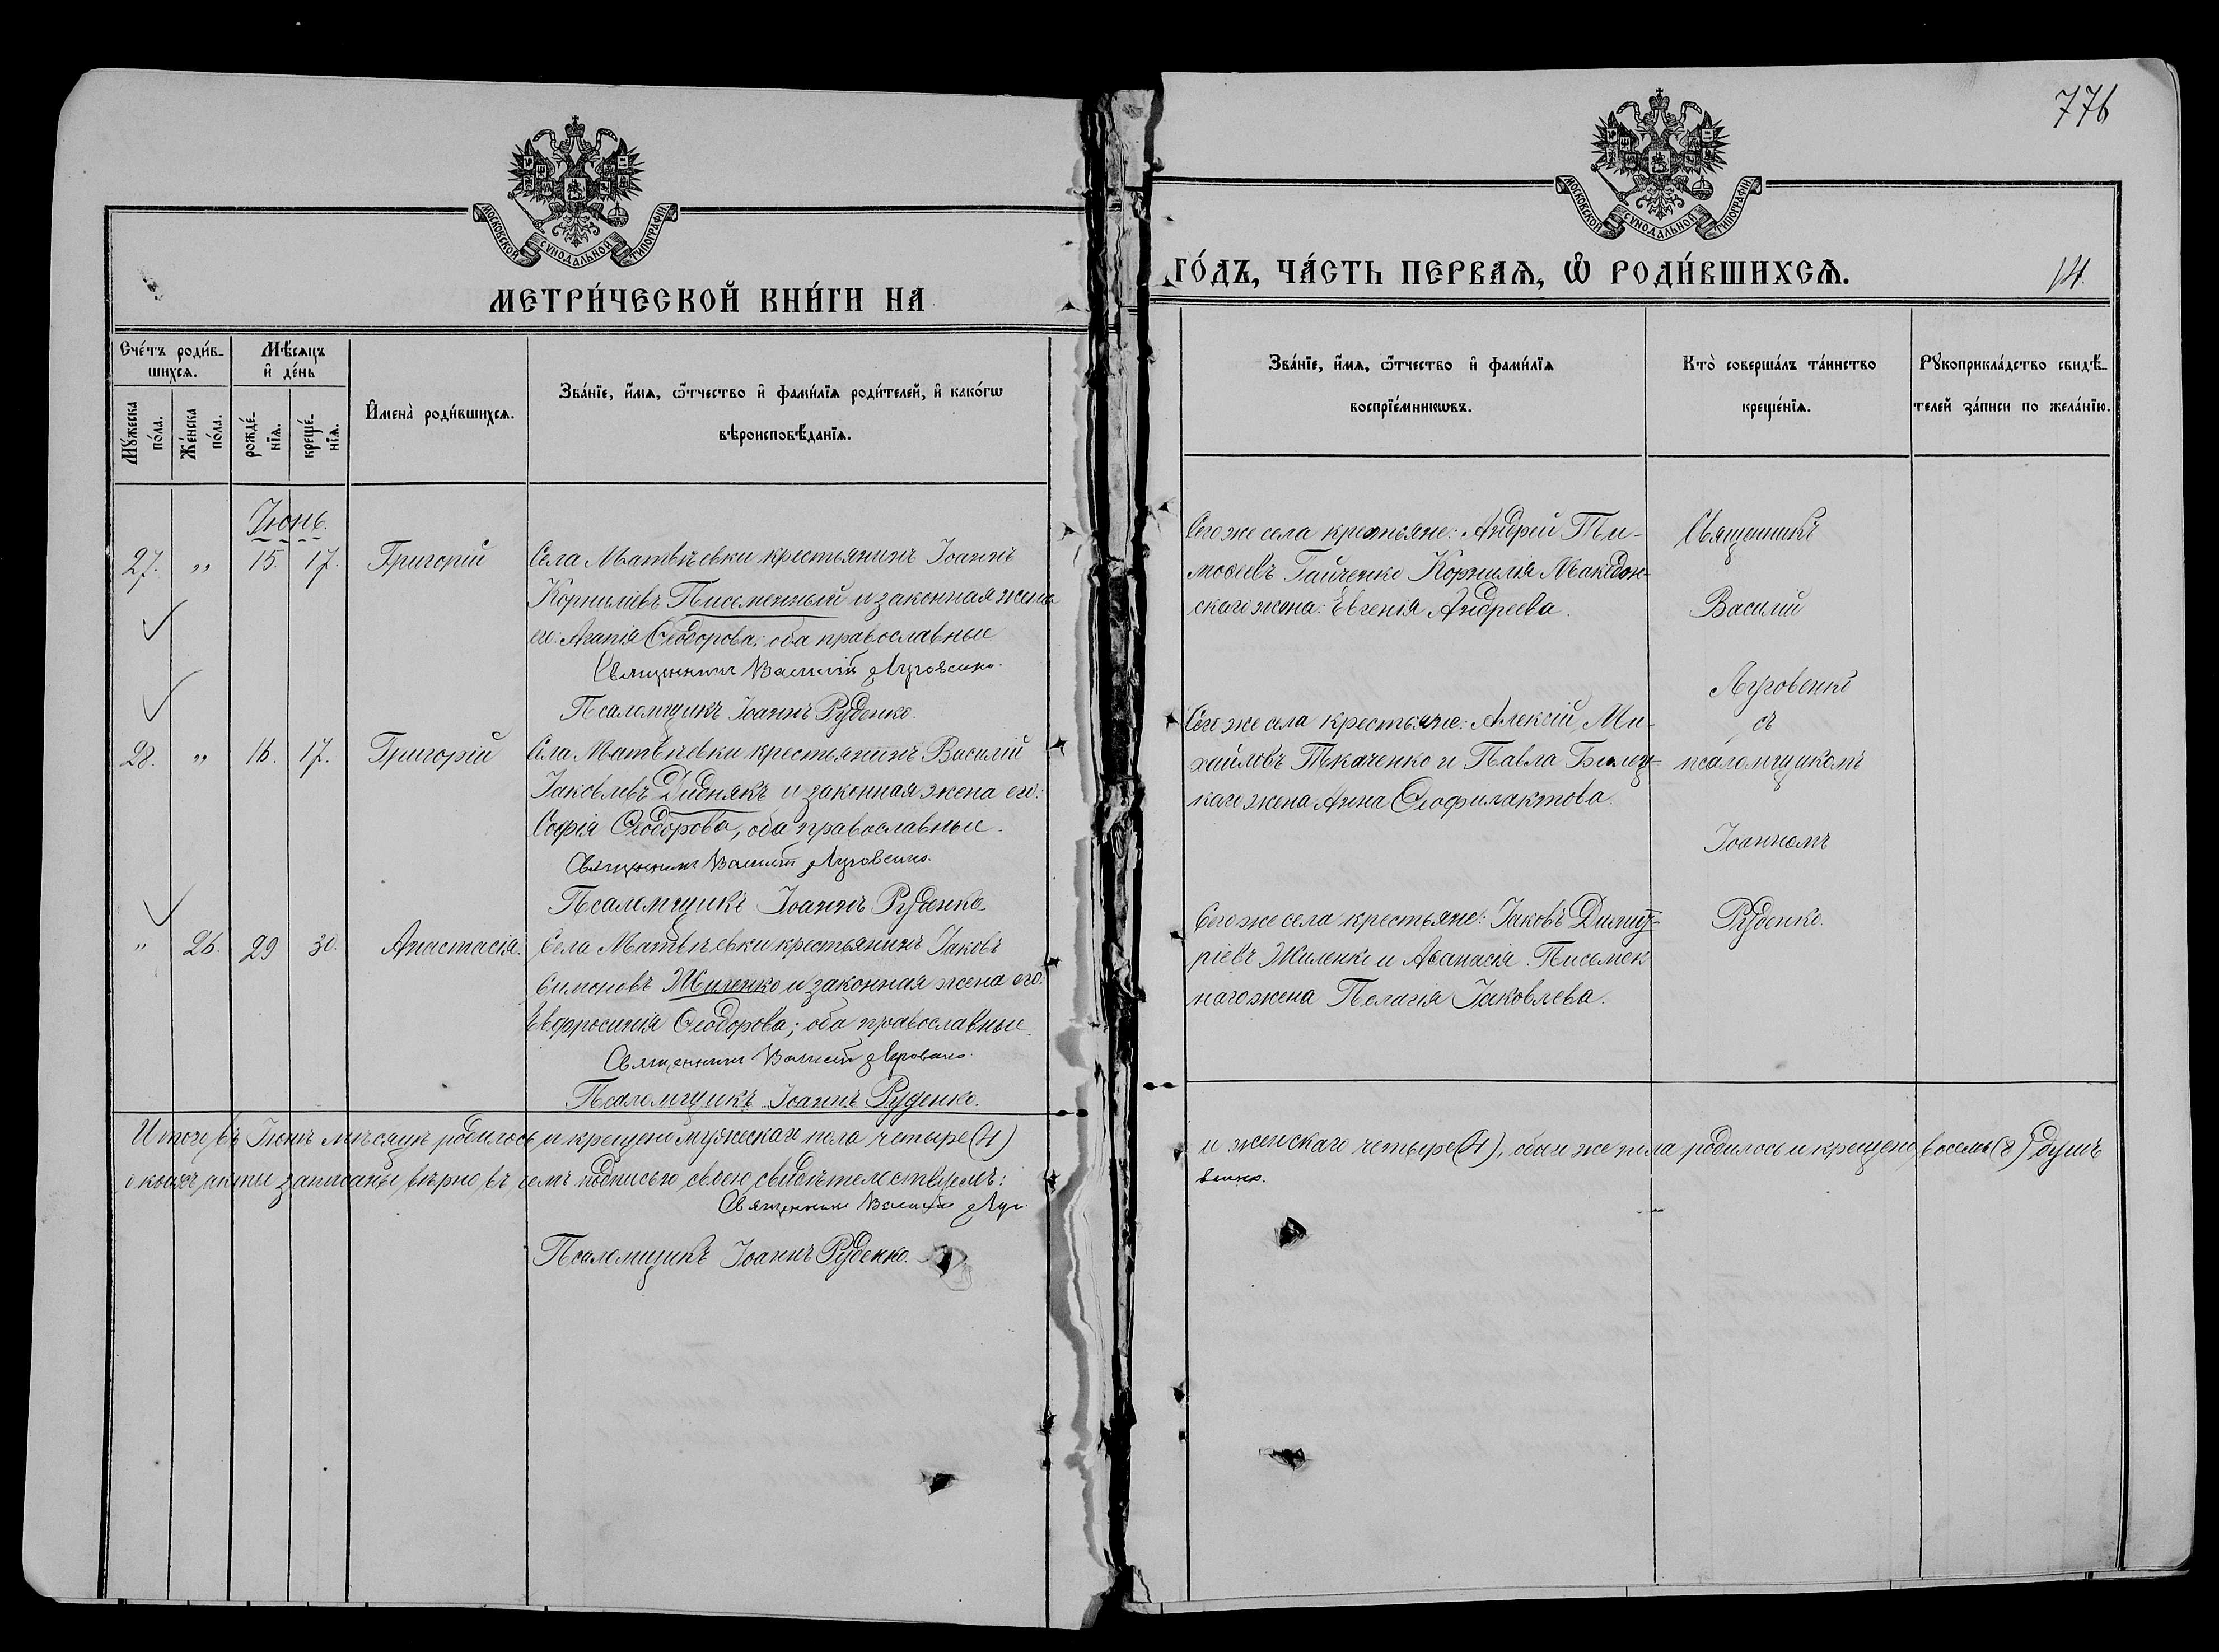 776
МОСКОВСКОЙ СѴНОДАЛЬНОЙ ТИПОГРАФІИ.
МОСКОВСКОЙ СѴНОДАЛЬНОЙ ТИПОГРАФІИ.
МЕТРИ́ЧЕСКОЙ КНИ́ГИ НА
ГО́ДЪ, ЧА́СТЬ ПЕРВАѦ, Ѡ҆ РОДИ́ВШИХСѦ.
14.
Сче́тъ роди́в-
шихсѧ.
Мꙋ́жеска по́ла.
Же́нска по́ла.
Мѣ́сѧцъ и҆ де́нь
рожде́-нїѧ.
креще́-нїѧ.
И҆мена̀ роди́вшихсѧ.
Зва́нїе, и҆́мѧ, ѻ҆́тчество и҆ фами́лїѧ роди́телей, и҆ како́гѡ
вѣроисповѣ́данїѧ.
Зва́нїе, и҆́мѧ, ѻ҆́тчество и҆ фами́лїѧ
воспрїе́мникѡвъ.
Кто̀ соверша́лъ та́инство
креще́нїѧ.
Рꙋкоприкла́дство свидѣ́-
телей за́писи по жела́нїю.
Іюнь.
27. " 15. 17. Григорій
Села Матвѣевки крестьянинъ Іоаннъ
Корниліевъ Писменный и законная жена
его: Агапія Ѳеодорова; оба православные
Священникъ Василій Луговенко.
Псаломщикъ Іоаннъ Руденко.
Сего же села крестьяне: Андрей Ти-
моѳеевъ Гайченко Корнилія Македон-
скаго жена: Евгенія Андреева.
Священникъ
Василій
Луговенко
съ
псаломщикомъ
Іоанномъ
Руденко.
28. " 16. 17. Григорій
Села Матвѣевки крестьянинъ Василій
Іаковлевъ Диднякъ и законная жена его:
Софія Ѳеодорова, оба православные.
Священникъ Василій Луговенко.
Псаломщикъ Іоаннъ Руденко
Сего же села крестьяне: Алексій Ми-
хайловъ Ткаченко и Павла Билец-
каго жена Анна Ѳеофилактова.
" 26. 29 30. Анастасія.
Села Матвѣевки крестьянинъ Іаковъ
Симоновъ Жиленко и законная жена его:
Евфросинія Ѳеодорова; оба православные.
Священникъ Василій Луговенко.
Псаломщикъ Іоаннъ Руденко.
Сего же села крестьяне: Іаковъ Димит-
ріевъ Жиленко и Аѳанасія Письмен
наго жена Пелагія Іаковлева.
Итого въ Іюнѣ мѣсяцѣ родилось и крещено мужескаго пола четыре (4)
и женскаго четыре (4), обоего же пола родилось и крещено восемь (8) душъ
о коихъ акты записаны вѣрно въ чемъ подписью своею свидѣтельствуемъ:
Священникъ Василій Луго
венко.
Псаломщикъ Іоаннъ Руденко.